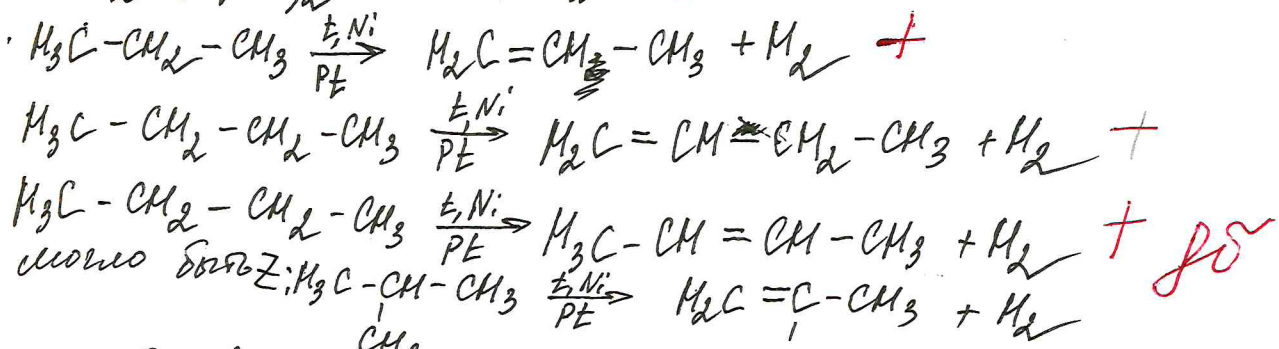 H₃C-CH₂-CH₃ t,Ni/Pt→ H₂C=CH-CH₃ + H₂ +
H₃C-CH₂-CH₂-CH₃ t,Ni/Pt→ H₂C=CH-CH₂-CH₃ + H₂ +
H₃C-CH₂-CH₂-CH₃ t,Ni/Pt→ H₃C-CH=CH-CH₃ + H₂ + 8б
могло быть Z: H₃C-CH-CH₃ t,Ni/Pt→ H₂C=C-CH₃ + H₂